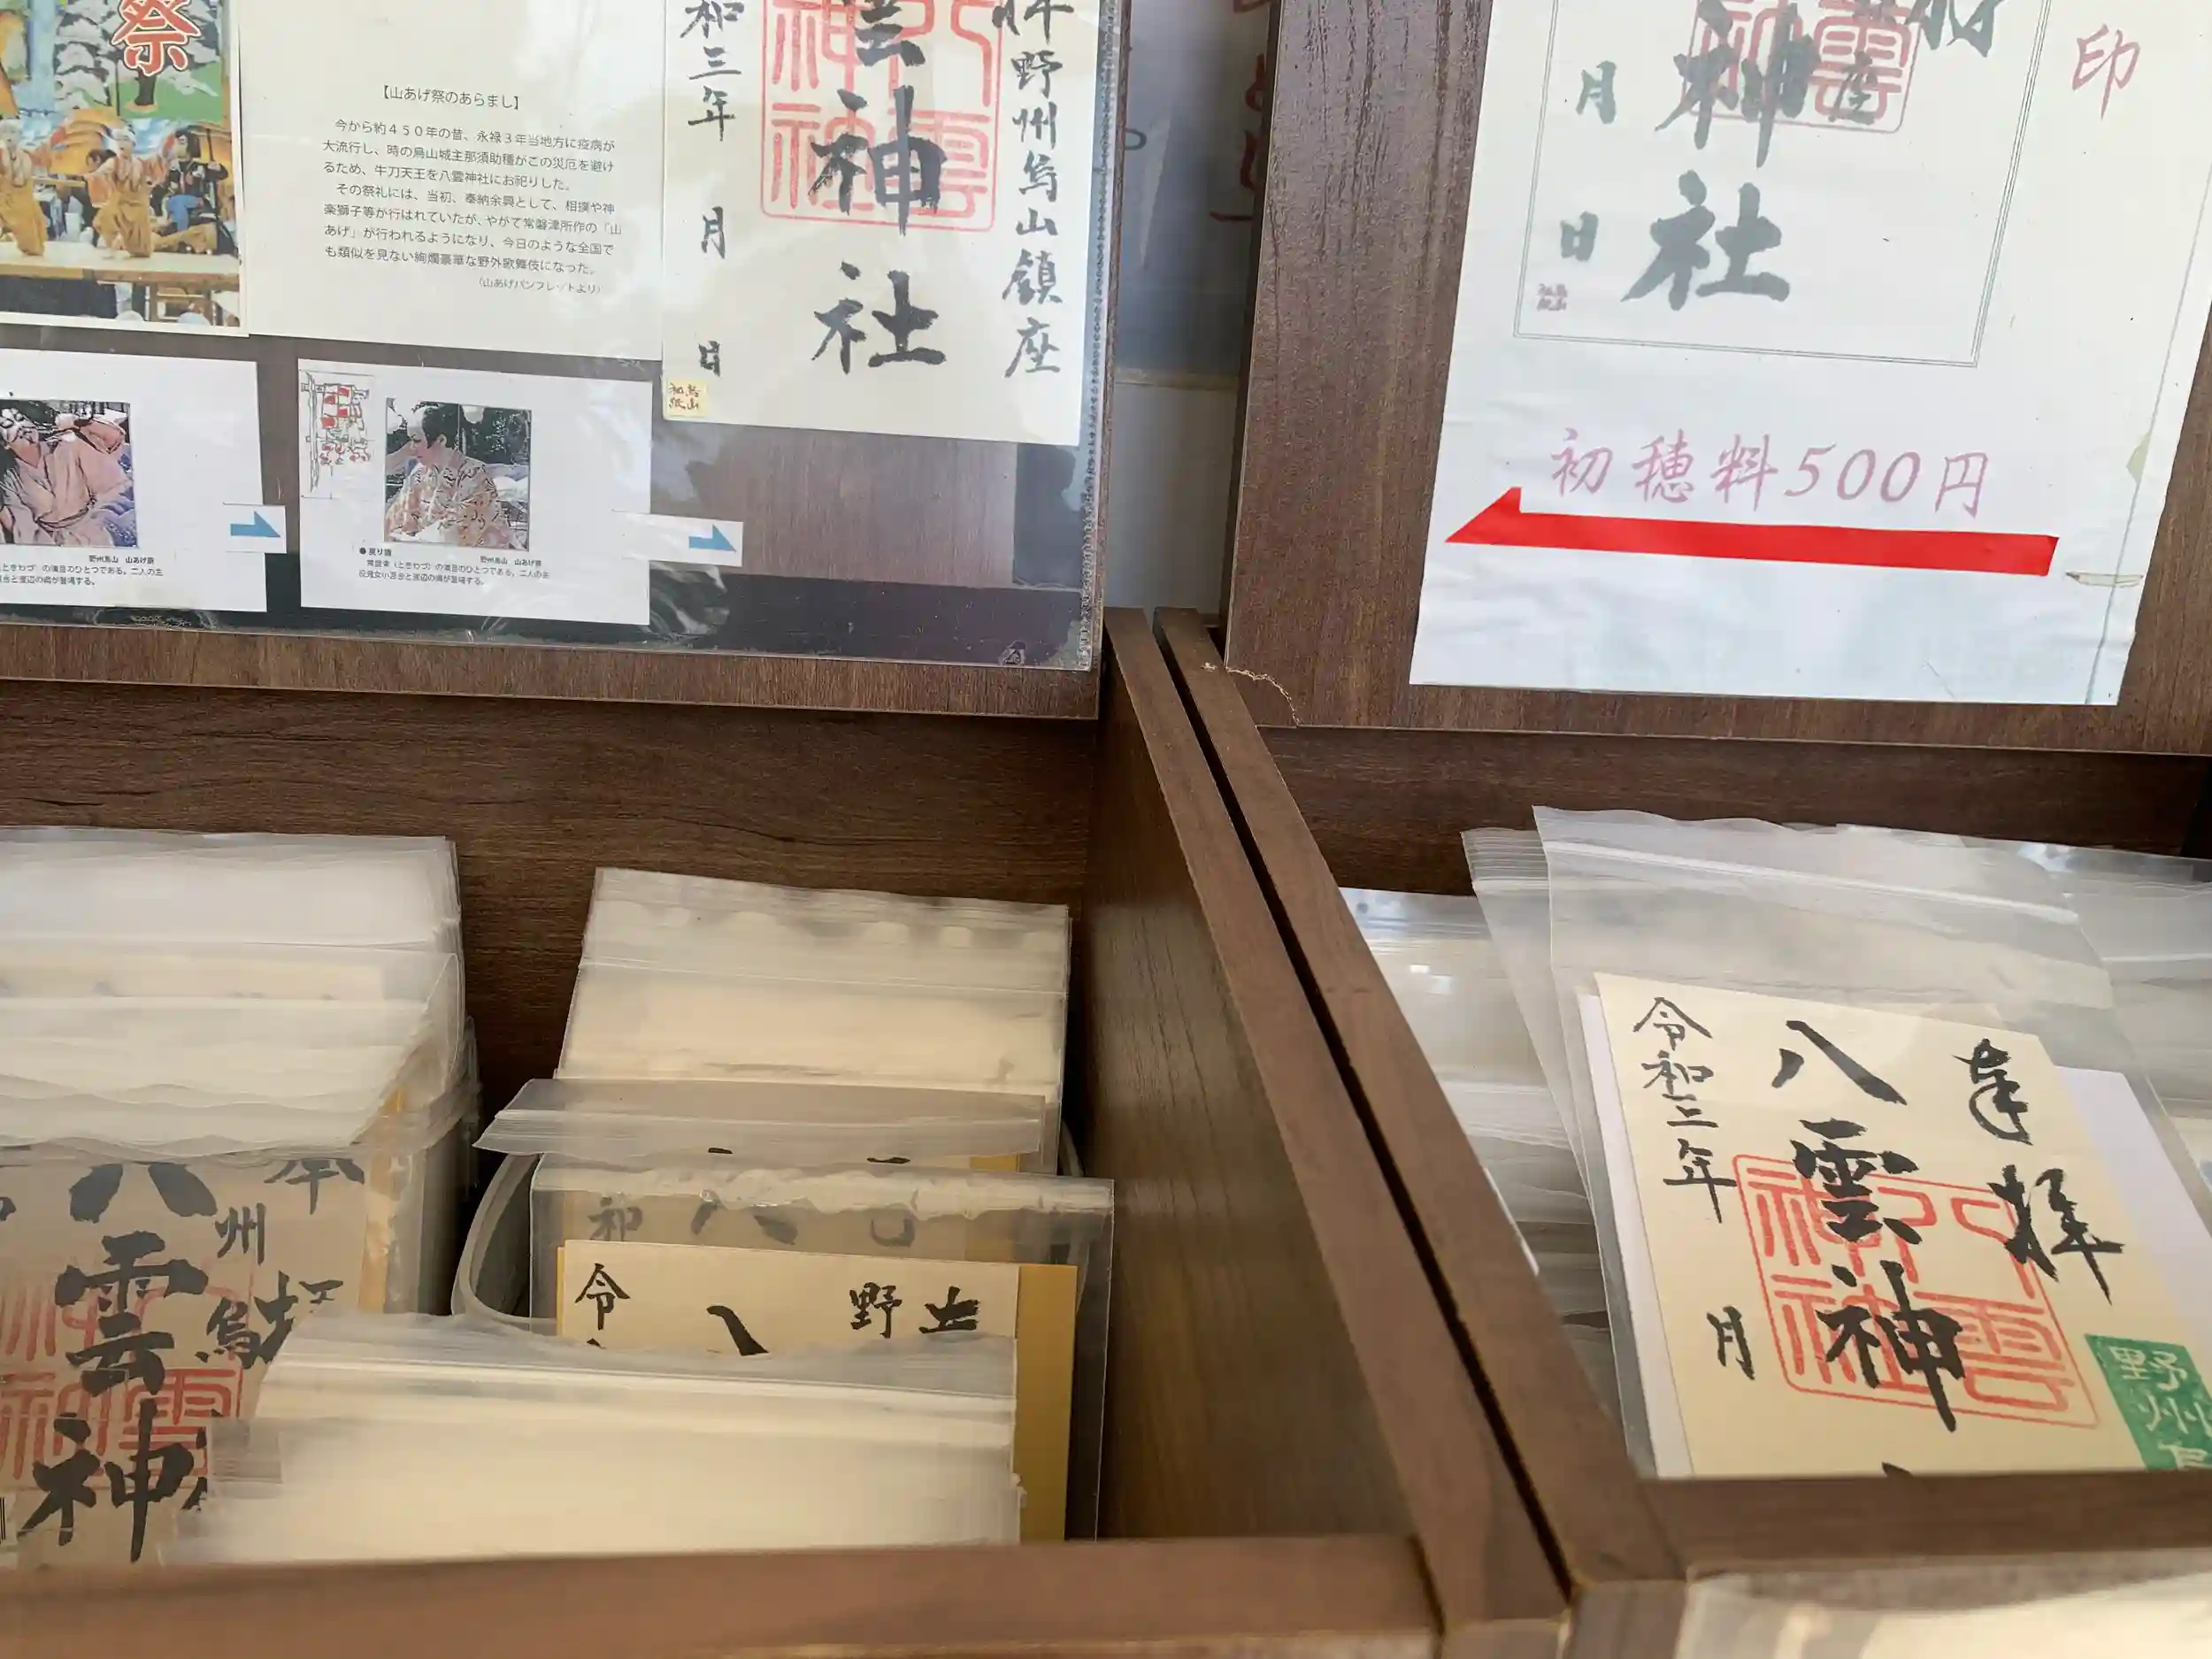 祭
【山あげ祭のあらまし】
今から約450年の昔、永禄3年当地方に疫病が
大流行し、時の烏山城主那須助種がこの災厄を避け
るため、牛刀天王を八雲神社にお祀りした。
その祭礼には、当初、奉納余興として、相撲や神
楽獅子等が行はれていたが、やがて常磐津所作の「山
あげ」が行われるようになり、今日のような全国で
も類似を見ない絢爛豪華な野外歌舞伎になった。
（山あげパンフレットより）
拝
野州烏山鎮座
雲神社
和三年
月
日
烏山
和紙
野州烏山 山あげ祭
●戻り橋
野州烏山 山あげ祭
常磐津（ときわづ）の演目のひとつである。二人の主
役鬼女小百合と渡辺の綱が登場する。
印
座
神社
月
日
烏山
和紙
初穂料500円
八雲神
州
烏
和
八
野
令
八
奉拝
八雲神
令和三年
月
野州